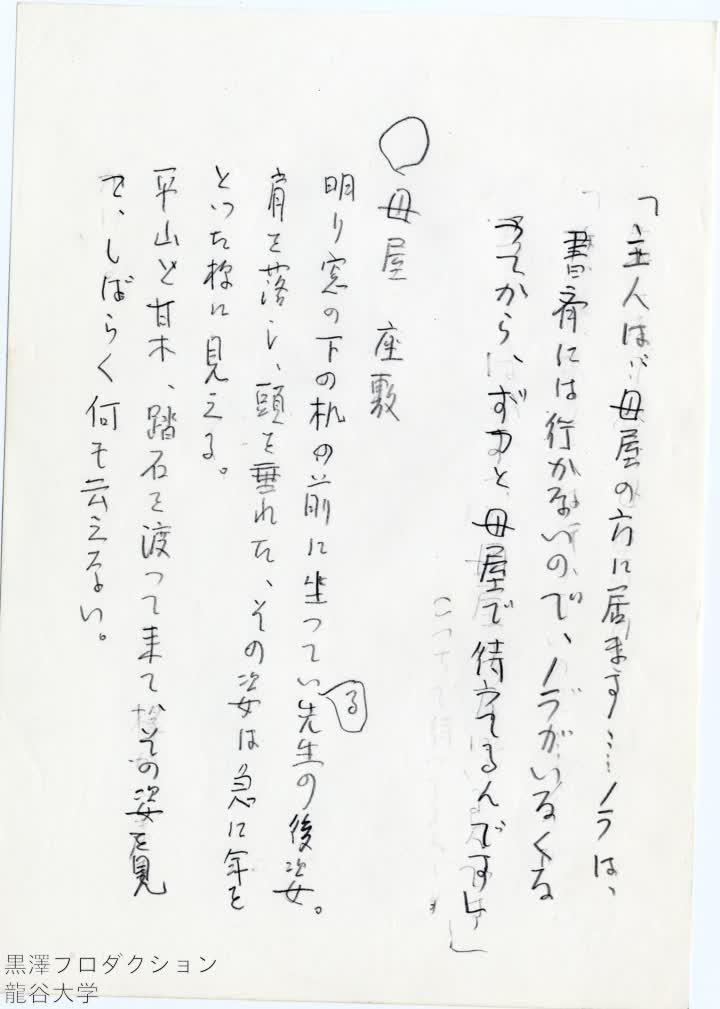 「主人は…母屋の方に居ます……ノラは、
書斉には行かないので、ノラがいなくな
つてから、ずつと母屋で待つてるんです」
○母屋　座敷
明り窓の下の机の前に坐つてい(る)先生の後姿。
肩を落し、頭を垂れた、その姿は急に年を
とつた様に見える。
平山と甘木、踏石を渡つて来て、その姿を見
て、しばらく何も云えない。
黒澤プロダクション
龍谷大学